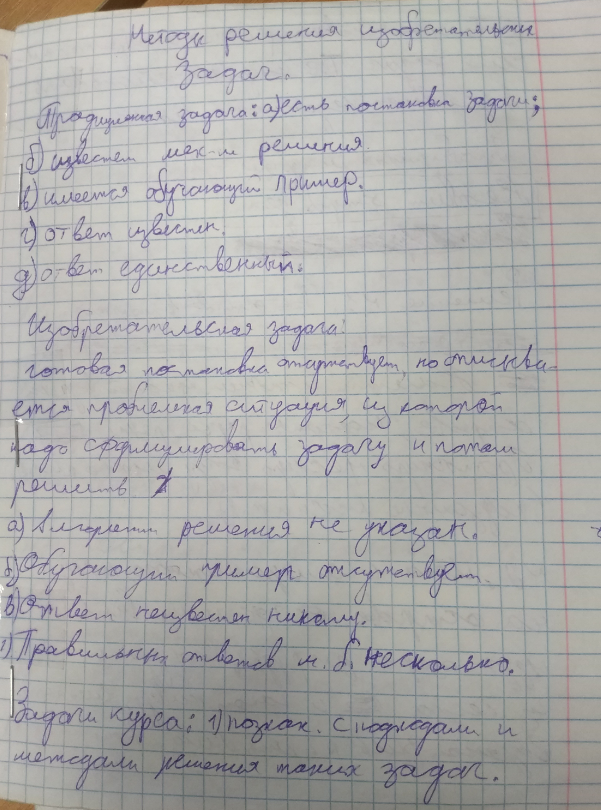 Методы решения изобретательских
задач.
Традиционная задача: а) есть постановка задачи;
б) известен мех-м решения.
в) имеется обучающий пример.
г) ответ известен.
д) ответ единственный.
Изобретательская задача:
готовая постановка отсутствует, но описыва-
ется проблемная ситуация, из которой
надо сформулировать задачу и потом
решить
а) Алгоритм решения не указан.
б) Обучающий пример отсутствует.
в) Ответ неизвестен никому.
г) Правильных ответов м. б. несколько.
Задачи курса: 1) познак. с подходами и
методами решения таких задач.